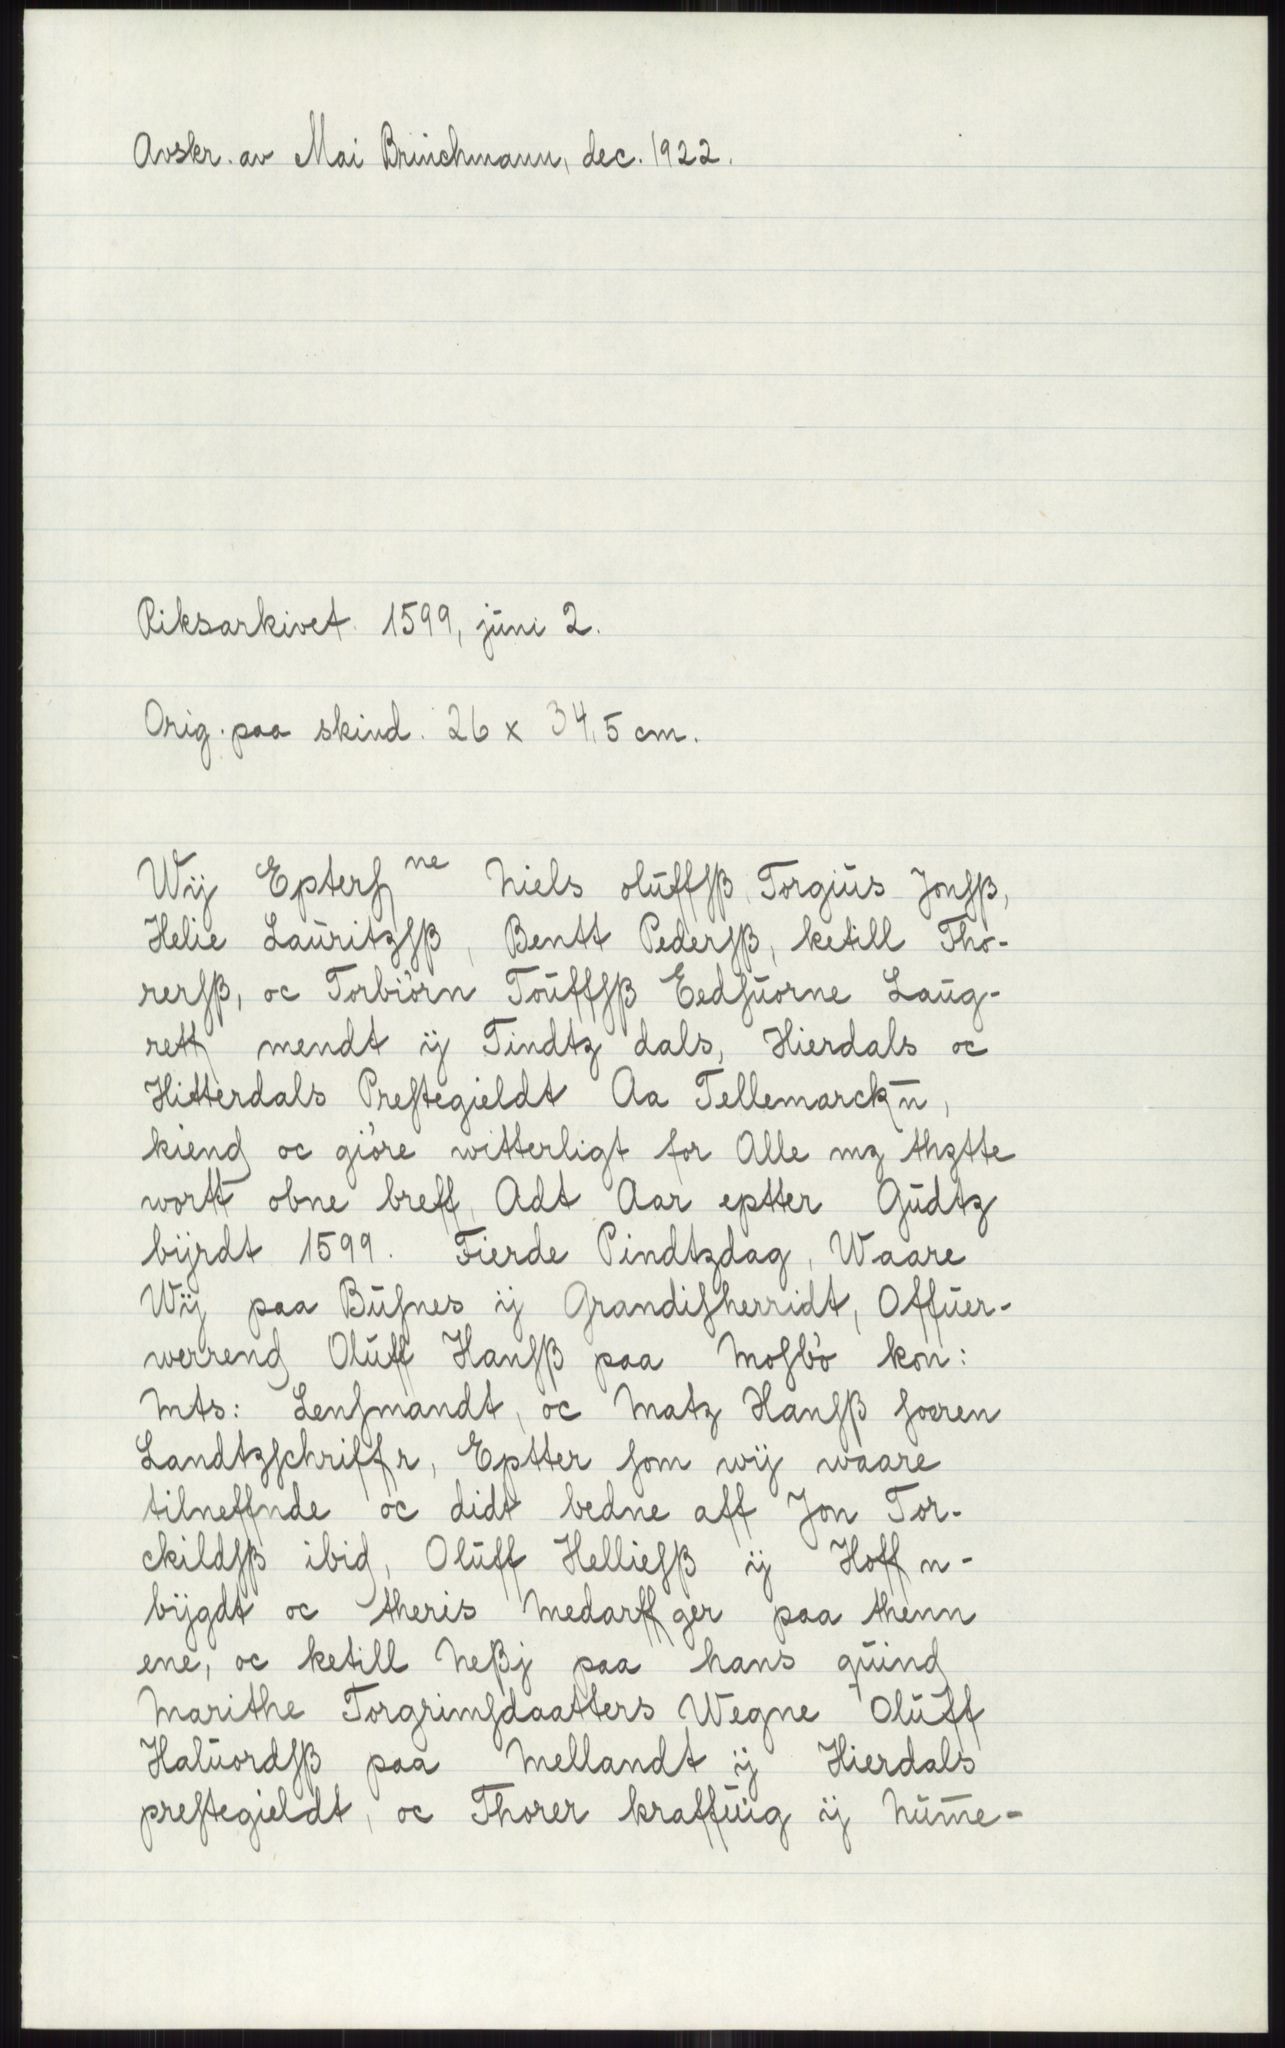 Avskr. av Mai Brinchmann, dec. 1922.
Riksarkivet. 1599, juni 2.
Orig. paa skind. 26 x 34,5 cm.
Wij Epterſ ne Niels oluffſß, Torgius Jonſß,
Helie Lauritzſß, Bentt Pederſß, ketill Tho-
rerſß, oc Torbiörn Touffſß Eedſuorne Laug-
rett mendt ij Tindtz dals, Hierdals oc
Hitterdals Preſtegieldt Aa Tellemarckn̄,
kiend oc giöre witterligt for Alle mz thztte
wortt obne breff, Adt Aar eptter Gudtz
bijrdt 1599. Fierde Pindtzdag, Waare
Wij paa Buſnes ij Grandiſherridt, Offuer-
werrend Oluff Hanſß paa Moſbö kon:
Mts: Lenſmandt, oc Matz Hanſß ſoeren
Landtzſchriffr, Eptter ſom wij waare
tilneffnde oc didt bedne aff Jon Tor-
ckildſß ibid, Oluff Hellieſß ij Hoffn-
bijgdt oc theris Medarffger paa thenn
ene, oc ketill Neßj paa hans quind
Marithe Torgrimſdaatters Wegne Oluff
Haluordſß paa Mellandt ij Hierdals
preſtegieldt, oc Thorer kraffuig ij Num̄e-